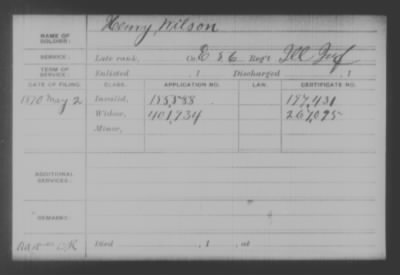 NAME OF SOLDIER: Henry Wilson
SERVICE: Late rank, Co. E & C Reg't Ill Inf
TERM OF SERVICE: Enlisted , 1 Discharged , 1
DATE OF FILING. CLASS. APPLICATION NO. LAW. CERTIFICATE NO.
1870 May 2 Invalid, 155,588 187,431
Widow, 401,734 267,095
Minor,
ADDITIONAL SERVICES:
REMARKS:
Died , 1 , at